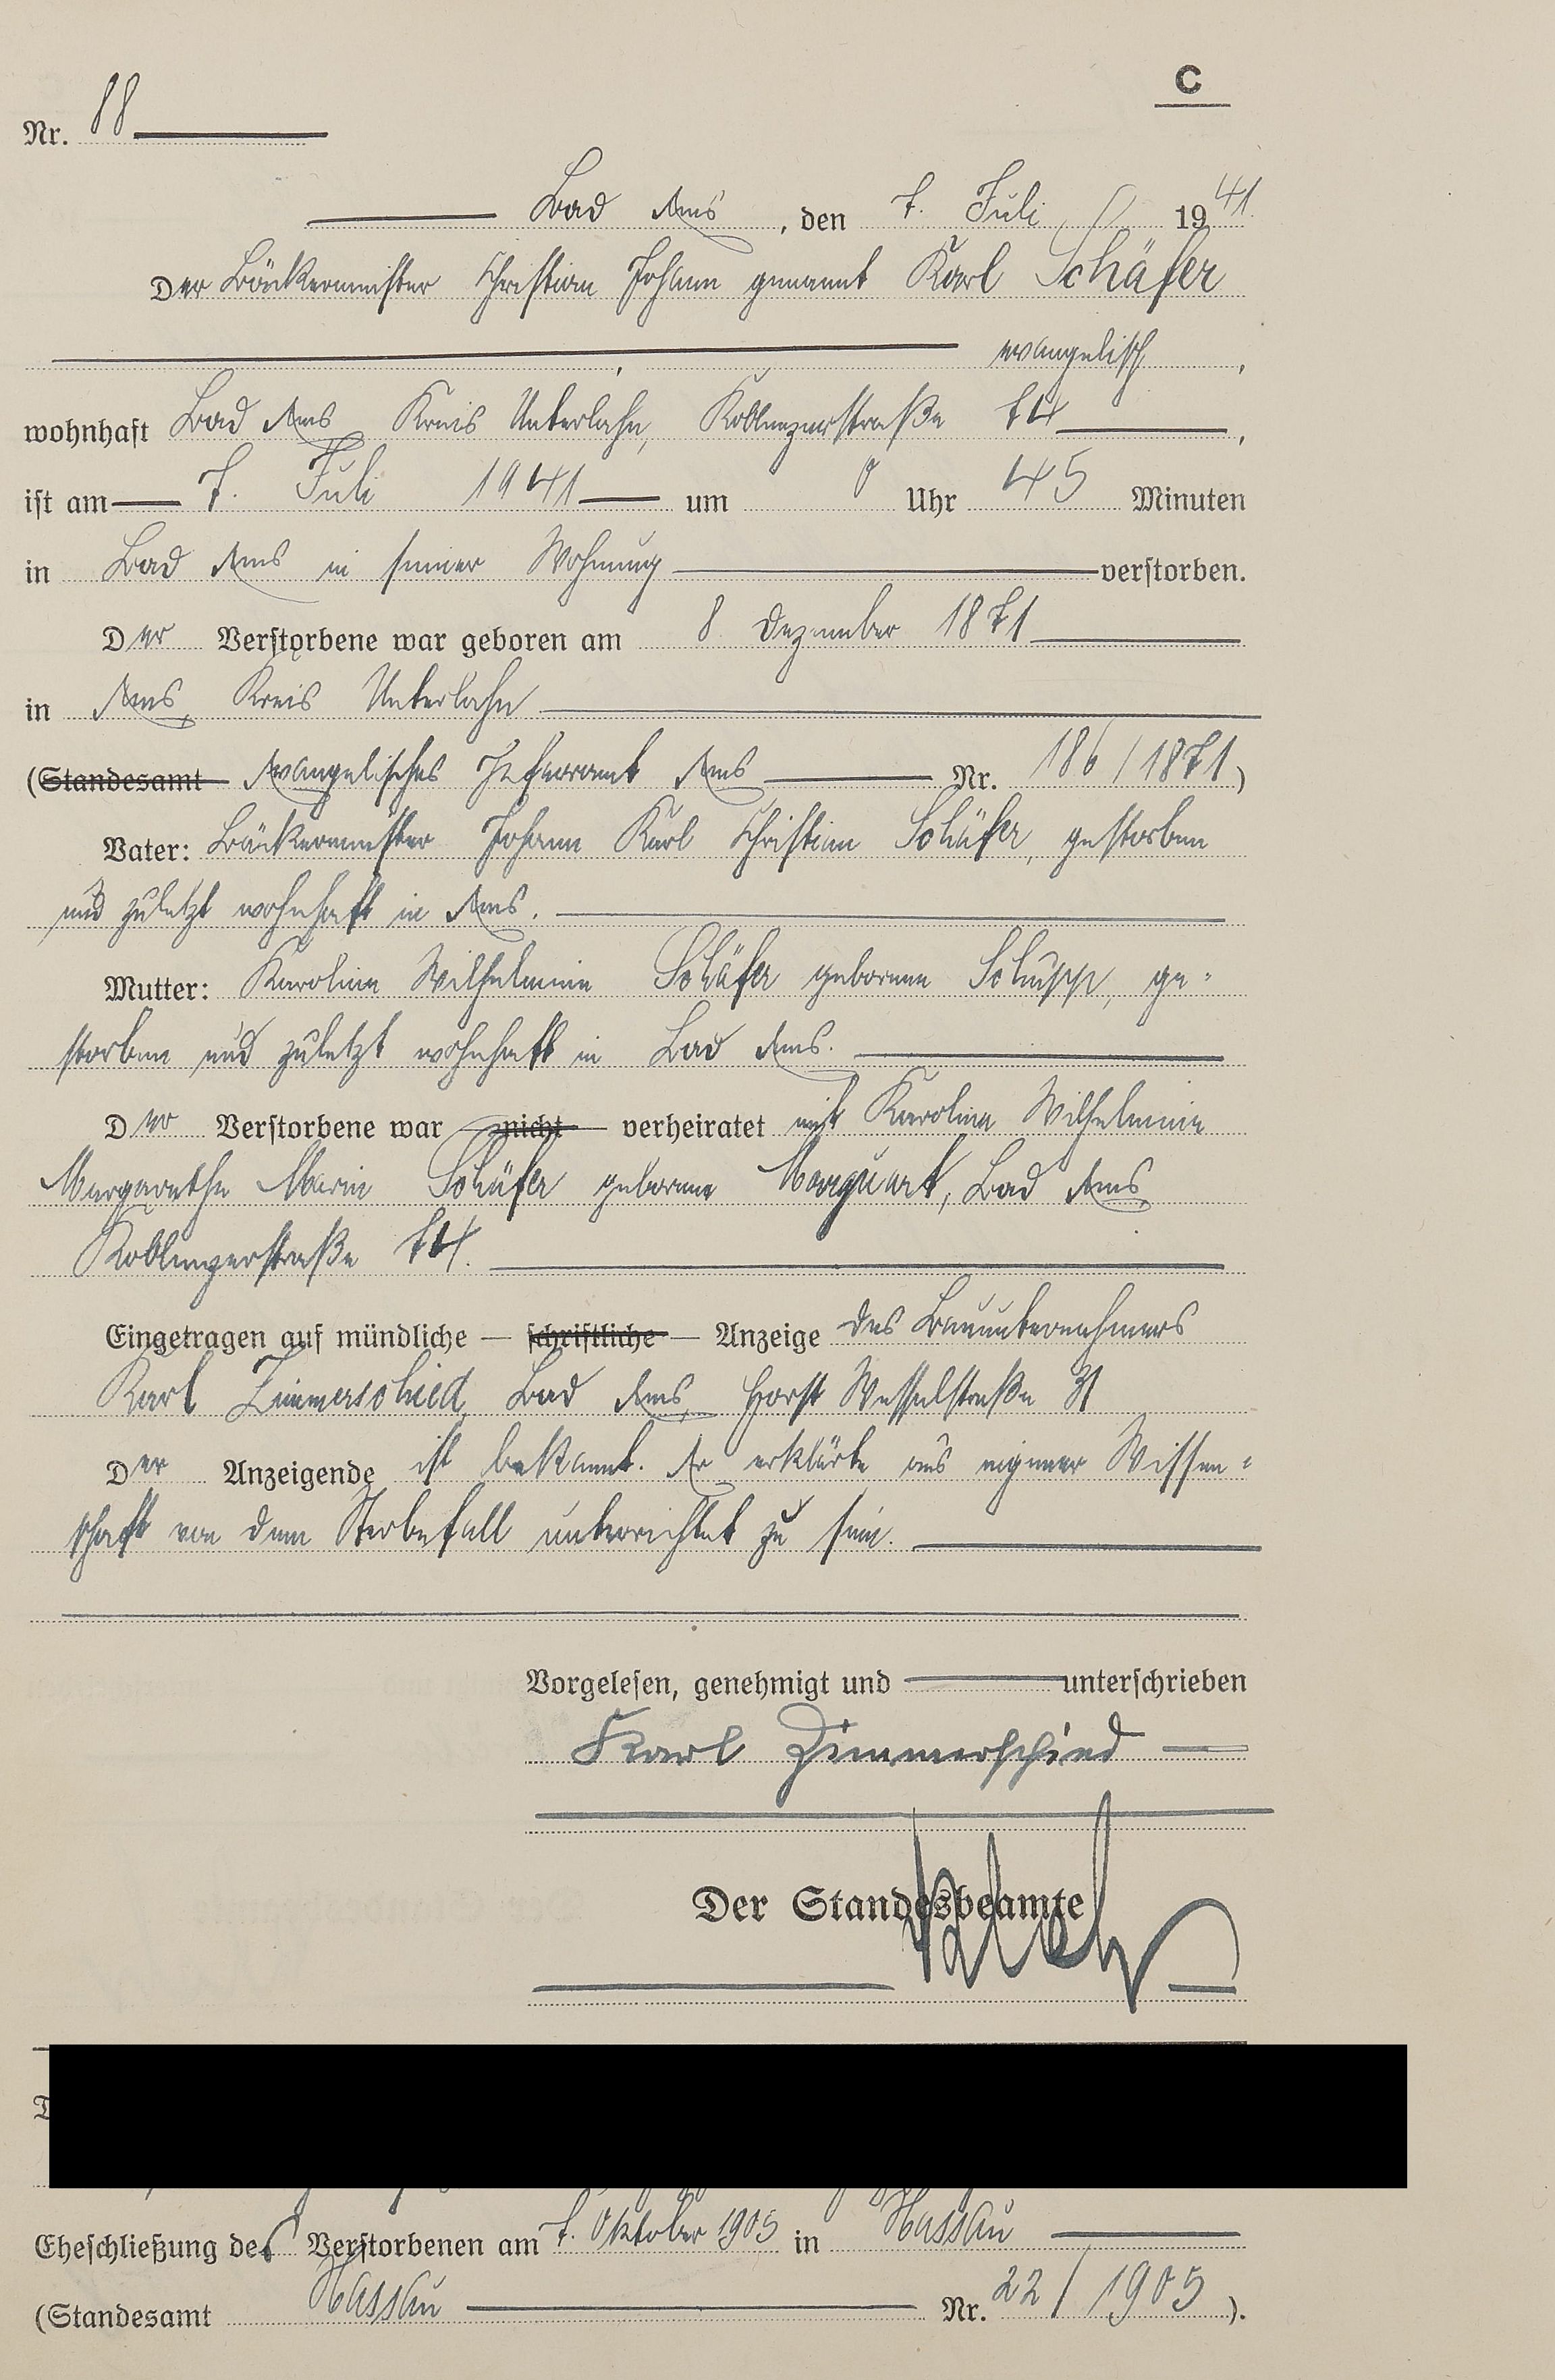 C
Nr. 88
Bad Ems, den 7. Juli 1941.
Der Bäckermeister Christian Johann genannt Karl Schäfer
evangelisch,
wohnhaft Bad Ems, Kreis Unterlahn, Koblenzerstraße 74,
ist am 7. Juli 1941 um 0 Uhr 45 Minuten
in Bad Ems in seiner Wohnung verstorben.
Der Verstorbene war geboren am 8. Dezember 1871
in Ems, Kreis Unterlahn
(Standesamt Evangelisches Pfarramt Ems Nr. 186/1871)
Vater: Bäckermeister Johann Karl Christian Schäfer, gestorben
und zuletzt wohnhaft in Ems.
Mutter: Karoline Wilhelmine Schäfer geborene Schupp, ge-
storben und zuletzt wohnhaft in Bad Ems.
Der Verstorbene war nicht verheiratet mit Karolina Wilhelmine
Margarethe Marie Schäfer geborene Marquart, Bad Ems,
Koblenzerstraße 74.
Eingetragen auf mündliche — schriftliche — Anzeige des Bauunternehmers
Karl Zimmerschied, Bad Ems, Horst Wesselstraße 31
Der Anzeigende ist bekannt. Er erklärte aus eigener Wissen-
schaft von dem Sterbefall unterrichtet zu sein.
Vorgelesen, genehmigt und unterschrieben
Karl Zimmerschied
Der Standesbeamte
Eheschließung des Verstorbenen am 7. Oktober 1905 in Nassau
(Standesamt Nassau Nr. 22/1905).